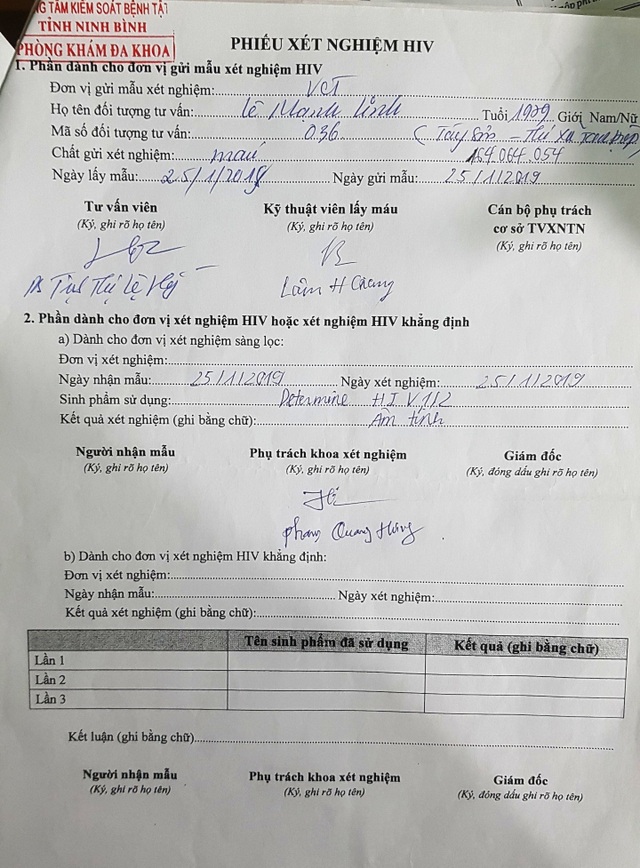 G TÂM KIỂM SOÁT BỆNH TẬT
TỈNH NINH BÌNH
PHÒNG KHÁM ĐA KHOA
PHIẾU XÉT NGHIỆM HIV
1. Phần dành cho đơn vị gửi mẫu xét nghiệm HIV
Đơn vị gửi mẫu xét nghiệm: VCT
Họ tên đối tượng tư vấn: Lê Mạnh Linh Tuổi 1979 Giới Nam/Nữ
Mã số đối tượng tư vấn: 036 (Tây Sơn - Thị xã Tam Điệp)
Chất gửi xét nghiệm: máu 164.064.054
Ngày lấy mẫu: 25/1/2019 Ngày gửi mẫu: 25/1/2019
Tư vấn viên Kỹ thuật viên lấy máu Cán bộ phụ trách
(Ký, ghi rõ họ tên) (Ký, ghi rõ họ tên) cơ sở TVXNTN
(Ký, ghi rõ họ tên)
Lâm H Chang
2. Phần dành cho đơn vị xét nghiệm HIV hoặc xét nghiệm HIV khẳng định
a) Dành cho đơn vị xét nghiệm sàng lọc:
Đơn vị xét nghiệm:
Ngày nhận mẫu: 25/1/2019 Ngày xét nghiệm: 25/1/2019
Sinh phẩm sử dụng: Determine HIV 1/2
Kết quả xét nghiệm (ghi bằng chữ): Âm tính
Người nhận mẫu Phụ trách khoa xét nghiệm Giám đốc
(Ký, ghi rõ họ tên) (Ký, ghi rõ họ tên) (Ký, đóng dấu ghi rõ họ tên)
Phạm Quang Hưng
b) Dành cho đơn vị xét nghiệm HIV khẳng định:
Đơn vị xét nghiệm:
Ngày nhận mẫu: Ngày xét nghiệm:
Kết quả xét nghiệm (ghi bằng chữ):
Tên sinh phẩm đã sử dụng Kết quả (ghi bằng chữ)
Lần 1
Lần 2
Lần 3
Kết luận (ghi bằng chữ)
Người nhận mẫu Phụ trách khoa xét nghiệm Giám đốc
(Ký, ghi rõ họ tên) (Ký, ghi rõ họ tên) (Ký, đóng dấu ghi rõ họ tên)